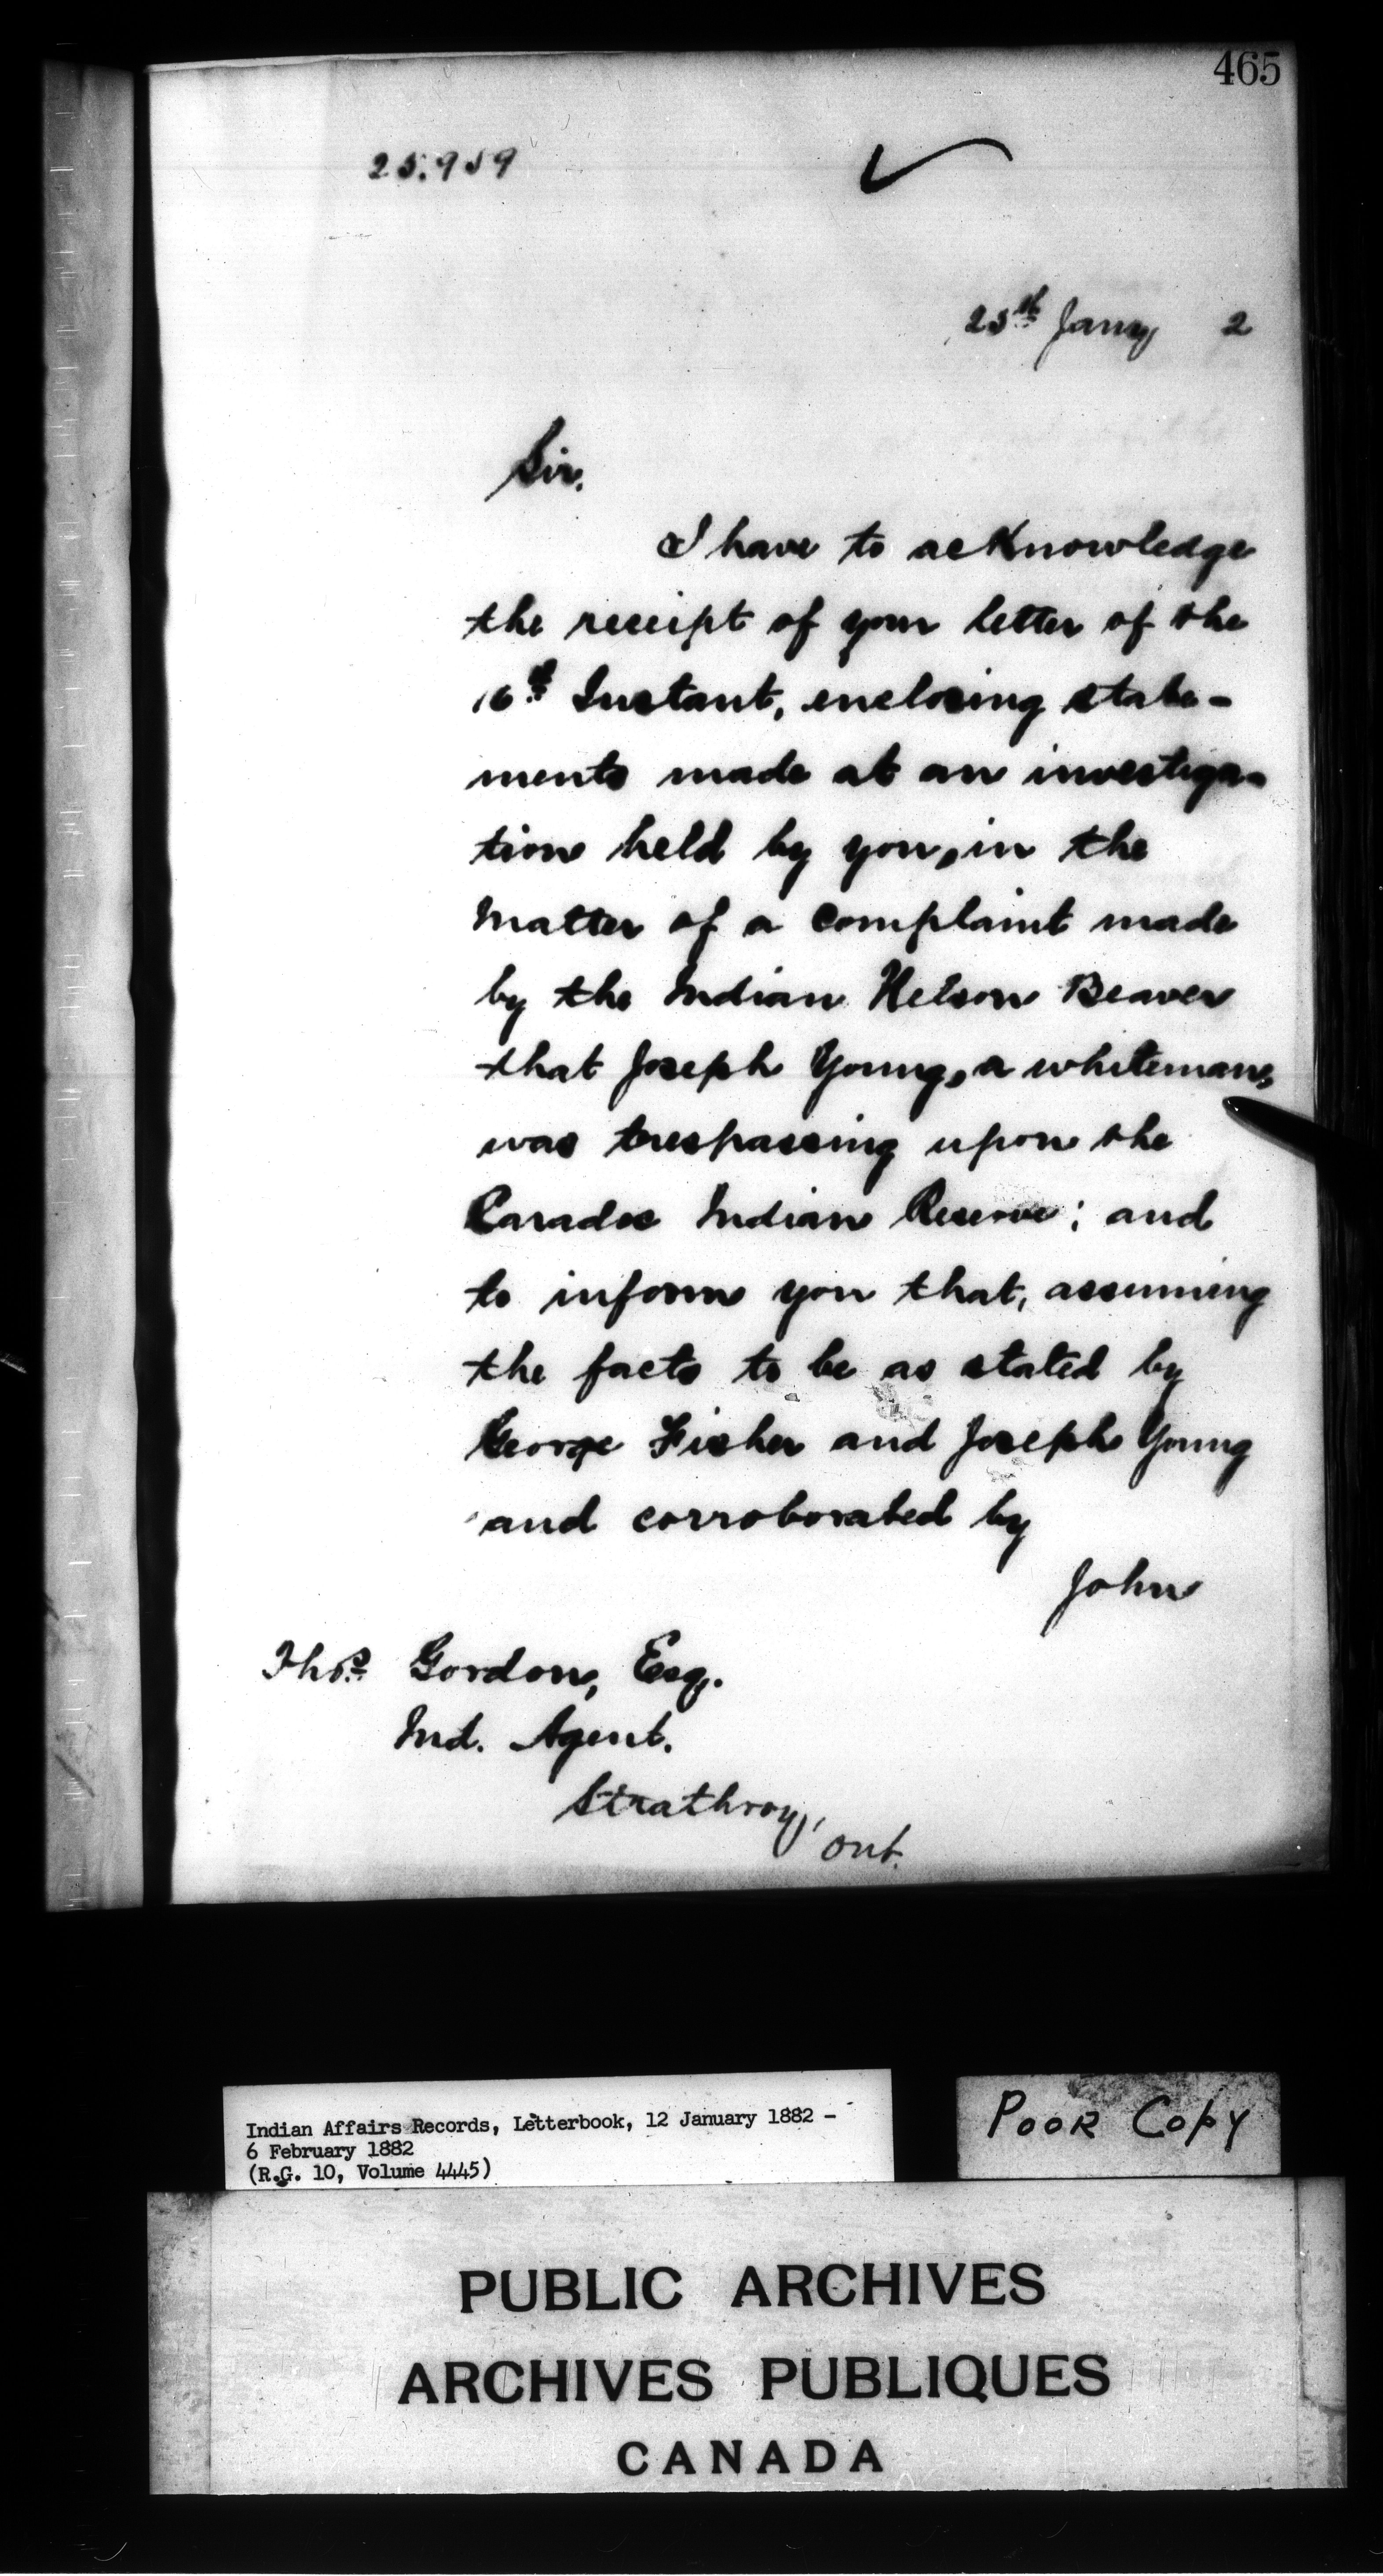 465
25.959
25th Jany 2
Sir.
I have to acKnowledge
the receipt of your letter of the
16th Instant, enclosing state-
ments made at an investiga-
tion held by you, in the
Matter of a Complaint made
by the Indian Nelson Beaver
that Joseph Young, a whiteman,
was trespassing upon the
Caradoc Indian Reserve; and
to inform you that, assuming
the facts to be as stated by
George Fisher and Joseph Young
and corroborated by
John
Thos. Gordon, Esq.
Ind. Agent.
Strathroy,
Ont.
Indian Affairs Records, Letterbook, 12 January 1882 -
6 February 1882
(R.G. 10, Volume 4445)
POOR COPY
PUBLIC ARCHIVES
ARCHIVES PUBLIQUES
CANADA